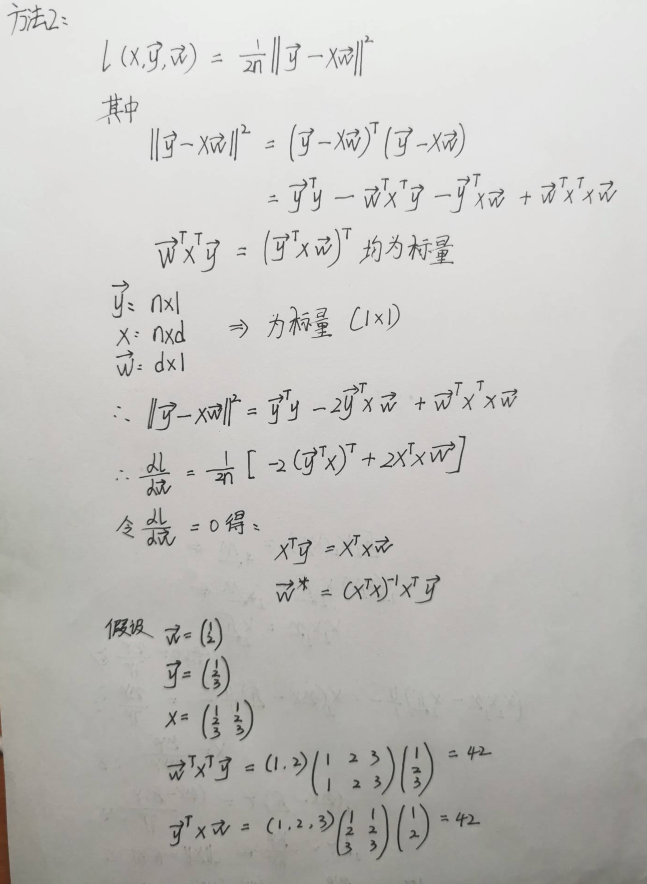 方法2:
l(X,y⃗,w⃗) = 1/2n ‖y⃗-Xw⃗‖²
其中
‖y⃗-Xw⃗‖² = (y⃗-Xw⃗)ᵀ(y⃗-Xw⃗)
= y⃗ᵀy - w⃗ᵀXᵀy⃗ - y⃗ᵀXw⃗ + w⃗ᵀXᵀXw⃗
w⃗ᵀXᵀy⃗ = (y⃗ᵀXw⃗)ᵀ 均为标量
y⃗: n×1
X: n×d ⇒ 为标量 (1×1)
w⃗: d×1
∴ ‖y⃗-Xw⃗‖² = y⃗ᵀy - 2y⃗ᵀXw⃗ + w⃗ᵀXᵀXw⃗
∴ dl/dw⃗ = 1/2n [-2(y⃗ᵀX)ᵀ + 2XᵀXw⃗]
令 dl/dw⃗ = 0 得:
Xᵀy⃗ = XᵀXw⃗
w⃗* = (XᵀX)⁻¹Xᵀy⃗
假设 w⃗ = (1 2)
y⃗ = (1 2 3)
X = (1 1 2 2 3 3)
w⃗ᵀXᵀy⃗ = (1,2)(1 2 3 1 2 3)(1 2 3) = 42
y⃗ᵀXw⃗ = (1,2,3)(1 1 2 2 3 3)(1 2) = 42